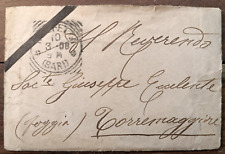 10
3-08
(BARI)
Al Reverendo
Sac.te Giuseppe
(Foggia) Torremaggiore